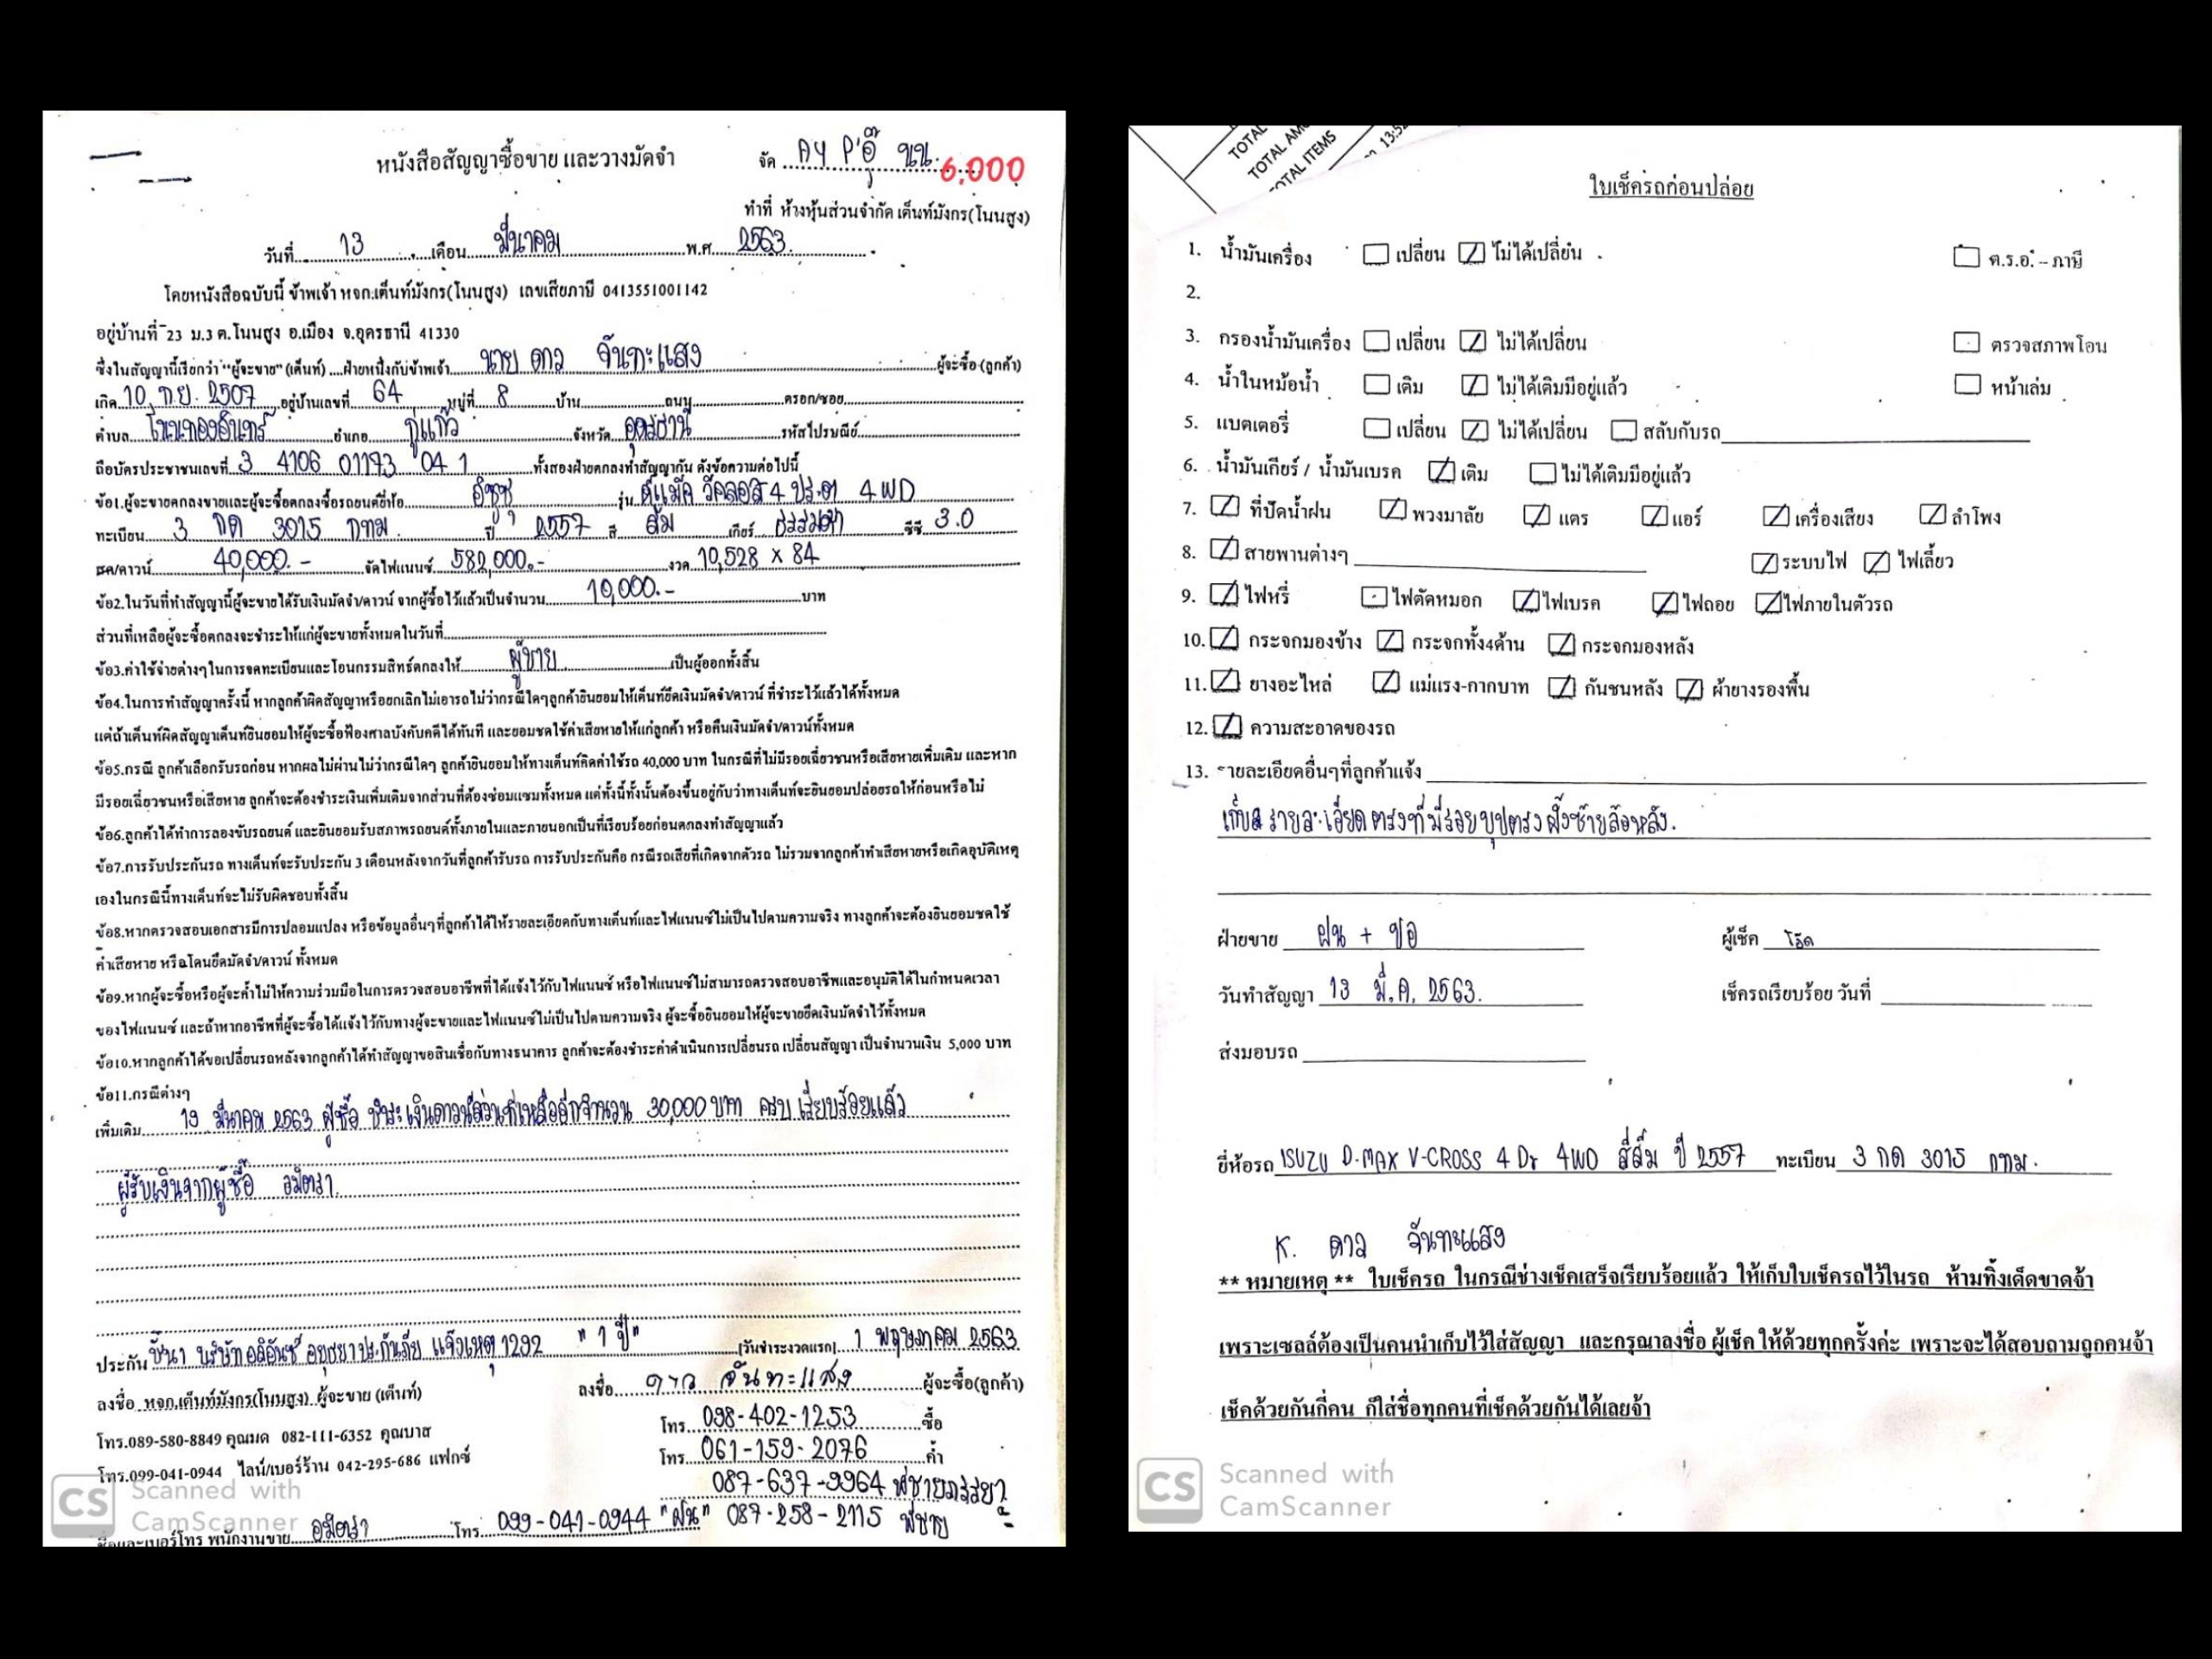 หนังสือสัญญาซื้อขาย และวางมัดจำ
จัด AY P'อี๊ 
6,000
ทำที่ ห้างหุ้นส่วนจำกัด เต็นท์มังกร(โนนสูง)
วันที่ 13 เดือน มีนาคม พ.ศ 2563.
โดยหนังสือฉบับนี้ ข้าพเจ้า หจก.เต็นท์มังกร(โนนสูง) เลขเสียภาษี 0413551001142
อยู่บ้านที่ 23 ม.3 ต.โนนสูง อ.เมือง จ.อุดรธานี 41330
ซึ่งในสัญญานี้เรียกว่า "ผู้จะขาย" (เต็นท์) ....ฝ่ายหนึ่งกับข้าพเจ้า นาย ดาว จันทะแสง ผู้จะซื้อ (ลูกค้า)
เกิด 10 ก.ย. 2507 อยู่บ้านเลขที่ 64 หมู่ที่ 8 บ้าน ถนน ตรอก/ซอย
ตำบล โนนทองอินทร์ อำเภอ กู่แก้ว จังหวัด อุดรธานี รหัสไปรษณีย์
ถือบัตรประชาชนเลขที่ 3 4106 01193 04 1 ทั้งสองฝ่ายตกลงทำสัญญากัน ดังข้อความต่อไปนี้
ข้อ1.ผู้จะขายตกลงขายและผู้จะซื้อตกลงซื้อรถยนต์ยี่ห้อ อีซูซุ รุ่น ดีแม็ค วีคลอส 4 ประตู 4WD
ทะเบียน 3 กด 3015 กทม. ปี 2557 สี ส้ม เกียร์ ธรรมดา ซีซี 3.0
สด/ดาวน์ 40,000.- จัดไฟแนนซ์ 582,000.- งวด 10,528 x 84
ข้อ2.ในวันที่ทำสัญญานี้ผู้จะขายได้รับเงินมัดจำ/ดาวน์ จากผู้ซื้อไว้แล้วเป็นจำนวน 10,000.- บาท
ส่วนที่เหลือผู้จะซื้อตกลงจะชำระให้แก่ผู้จะขายทั้งหมดในวันที่
ข้อ3.ค่าใช้จ่ายต่างๆในการจดทะเบียนและโอนกรรมสิทธ์ตกลงให้ ผู้ขาย เป็นผู้ออกทั้งสิ้น
ข้อ4.ในการทำสัญญาครั้งนี้ หากลูกค้าผิดสัญญาหรือยกเลิกไม่เอารถไม่ว่ากรณีใดๆลูกค้ายินยอมให้เต็นท์ยึดเงินมัดจำ/ดาวน์ ที่ชำระไว้แล้วได้ทั้งหมด
แต่ถ้าเต็นท์ผิดสัญญาเต็นท์ยินยอมให้ผู้จะซื้อฟ้องศาลบังคับคดีได้ทันที และยอมชดใช้ค่าเสียหายให้แก่ลูกค้า หรือคืนเงินมัดจำ/ดาวน์ทั้งหมด
ข้อ5.กรณี ลูกค้าเลือกรับรถก่อน หากผลไม่ผ่านไม่ว่ากรณีใดๆ ลูกค้ายินยอมให้ทางเต็นท์คิดค่าใช้รถ 40,000 บาท ในกรณีที่ไม่มีรอยเฉี่ยวชนหรือเสียหายเพิ่มเติม และหาก
มีรอยเฉี่ยวชนหรือเสียหาย ลูกค้าจะต้องชำระเงินเพิ่มเติมจากส่วนที่ต้องซ่อมแซมทั้งหมด แต่ทั้งนี้ทั้งนั้นต้องขึ้นอยู่กับว่าทางเต็นท์จะยินยอมปล่อยรถให้ก่อนหรือไม่
ข้อ6.ลูกค้าได้ทำการลองขับรถยนต์ และยินยอมรับสภาพรถยนต์ทั้งภายในและภายนอกเป็นที่เรียบร้อยก่อนตกลงทำสัญญาแล้ว
ข้อ7.การรับประกันรถ ทางเต็นท์จะรับประกัน 3 เดือนหลังจากวันที่ลูกค้ารับรถ การรับประกันคือ กรณีรถเสียที่เกิดจากตัวรถ ไม่รวมจากลูกค้าทำเสียหายหรือเกิดอุบัติเหตุ
เองในกรณีนี้ทางเต็นท์จะไม่รับผิดชอบทั้งสิ้น
ข้อ8.หากตรวจสอบเอกสารมีการปลอมแปลง หรือข้อมูลอื่นๆที่ลูกค้าได้ให้รายละเอียดกับทางเต็นท์และไฟแนนซ์ไม่เป็นไปตามความจริง ทางลูกค้าจะต้องยินยอมชดใช้
ค่าเสียหาย หรือโดนยึดมัดจำ/ดาวน์ ทั้งหมด
ข้อ9.หากผู้จะซื้อหรือผู้จะค้ำไม่ให้ความร่วมมือในการตรวจสอบอาชีพที่ได้แจ้งไว้กับไฟแนนซ์ หรือไฟแนนซ์ไม่สามารถตรวจสอบอาชีพและอนุมัติได้ในกำหนดเวลา
ของไฟแนนซ์ และถ้าหากอาชีพที่ผู้จะซื้อได้แจ้งไว้กับทางผู้จะขายและไฟแนนซ์ไม่เป็นไปตามความจริง ผู้จะซื้อยินยอมให้ผู้จะขายยึดเงินมัดจำไว้ทั้งหมด
ข้อ10.หากลูกค้าได้ขอเปลี่ยนรถหลังจากลูกค้าได้ทำสัญญาขอสินเชื่อกับทางธนาคาร ลูกค้าจะต้องชำระค่าดำเนินการเปลี่ยนรถ เปลี่ยนสัญญา เป็นจำนวนเงิน 5,000 บาท
ข้อ11.กรณีต่างๆ
เพิ่มเติม 19 มีนาคม 2563 ผู้ซื้อ ชำระเงินดาวน์ส่วนที่เหลืออีกจำนวน 30,000 บาท ครบเรียบร้อยแล้ว
ผู้รับเงินจากผู้ซื้อ อมิตรา
ประกัน ชั้น1 บริษัท อลิอันซ์ อยุธยาประกันภัย แจ้งเหตุ 1292 "1 ปี" [วันชำระงวดแรก] 1 พฤษภาคม 2563
ลงชื่อ หจก.เต็นท์มังกร(โนนสูง) ผู้จะขาย (เต็นท์) ลงชื่อ ดาว จันทะแสง ผู้จะซื้อ(ลูกค้า)
โทร.089-580-8849 คุณมด 082-111-6352 คุณบาส โทร. 098-402-1253 ซื้อ
โทร.099-041-0944 ไลน์/เบอร์ร้าน 042-295-686 แฟกซ์ โทร. 061-159-2076 ค้ำ
087-637-9964 พี่ชายภรรยา
ชื่อและเบอร์โทร พนักงานขาย อมิตรา โทร 099-041-0944 "ฝน" 087-258-2115 พี่ชาย
CS Scanned with
CamScanner
TOTAL
TOTAL AMO
TOTAL ITEMS
13:52
ใบเช็ครถก่อนปล่อย
1. น้ำมันเครื่อง เปลี่ยน ไม่ได้เปลี่ยน ต.ร.อ. – ภาษี
2.
3. กรองน้ำมันเครื่อง เปลี่ยน ไม่ได้เปลี่ยน ตรวจสภาพโอน
4. น้ำในหม้อน้ำ เติม ไม่ได้เติมมีอยู่แล้ว หน้าเล่ม
5. แบตเตอรี่ เปลี่ยน ไม่ได้เปลี่ยน สลับกับรถ
6. น้ำมันเกียร์ / น้ำมันเบรค เติม ไม่ได้เติมมีอยู่แล้ว
7. ที่ปัดน้ำฝน พวงมาลัย แตร แอร์ เครื่องเสียง ลำโพง
8. สายพานต่างๆ ระบบไฟ ไฟเลี้ยว
9. ไฟหรี่ ไฟตัดหมอก ไฟเบรค ไฟถอย ไฟภายในตัวรถ
10. กระจกมองข้าง กระจกทั้ง4ด้าน กระจกมองหลัง
11. ยางอะไหล่ แม่แรง-กากบาท กันชนหลัง ผ้ายางรองพื้น
12. ความสะอาดของรถ
13. รายละเอียดอื่นๆที่ลูกค้าแจ้ง
เก็บสี รายละเอียดตรงที่มีรอยบุปตรงฝั่งซ้ายล้อหลัง.
ฝ่ายขาย ฝน + ปอ ผู้เช็ค
วันทำสัญญา 13 มี.ค. 2563. เช็ครถเรียบร้อย วันที่
ส่งมอบรถ
ยี่ห้อรถ ISUZU D-MAX V-CROSS 4 Dr 4WD สีส้ม ปี 2557 ทะเบียน 3 กด 3015 กทม.
K. ดาว จันทะแสง
** หมายเหตุ ** ใบเช็ครถ ในกรณีช่างเช็คเสร็จเรียบร้อยแล้ว ให้เก็บใบเช็ครถไว้ในรถ ห้ามทิ้งเด็ดขาดจ้า
เพราะเซลล์ต้องเป็นคนนำเก็บไว้ใส่สัญญา และกรุณาลงชื่อ ผู้เช็ค ให้ด้วยทุกครั้งค่ะ เพราะจะได้สอบถามถูกคนจ้า
เช็คด้วยกันกี่คน ก็ใส่ชื่อทุกคนที่เช็คด้วยกันได้เลยจ้า
CS Scanned with
CamScanner